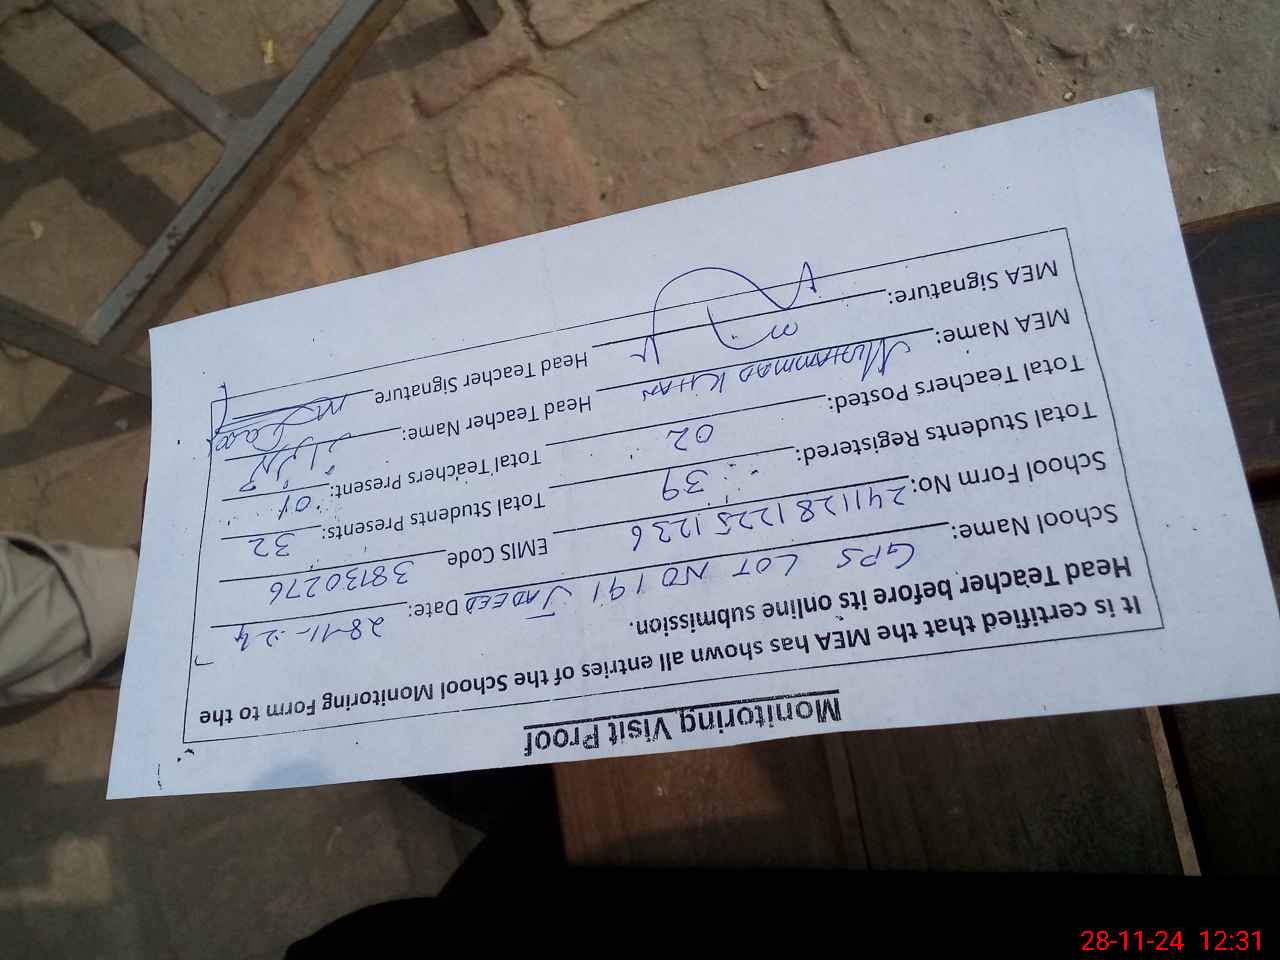 Monitoring Visit Proof
It is certified that the MEA has shown all entries of the School Monitoring Form to the
Head Teacher before its online submission.
School Name: GPS LOT NO 191 JADEED Date: 28-11-24
School Form No: 24112812251236 EMIS Code 38130276
Total Students Registered: 39 Total Students Presents: 32
Total Teachers Posted: 02 Total Teachers Present: 01
MEA Name: MUHAMMAD KHAN Head Teacher Name:
MEA Signature: Head Teacher Signature
28-11-24 12:31